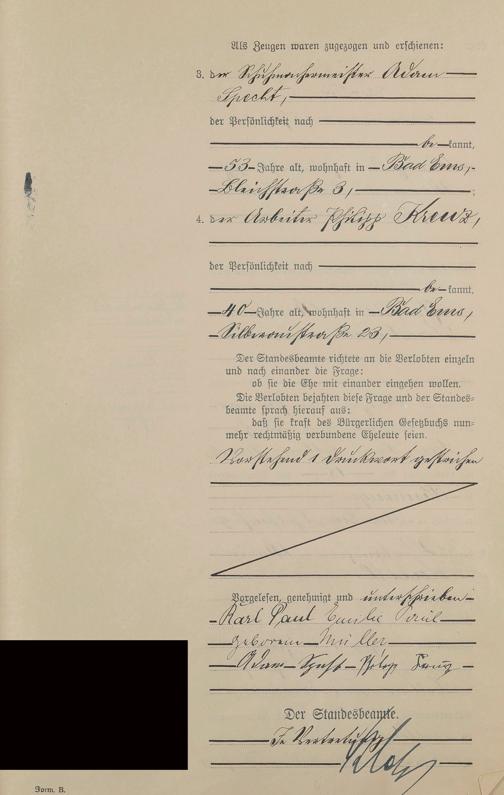 Als Zeugen waren zugezogen und erschienen:
3. der Schuhmachermeister Adam
Specht,
der Persönlichkeit nach
be kannt,
53 Jahre alt, wohnhaft in Bad Ems,
Bleichstraße 3,
4. der Arbeiter Philipp
der Persönlichkeit nach
be kannt,
40 Jahre alt, wohnhaft in Bad Ems,
Silberaustraße 23,
Der Standesbeamte richtete an die Verlobten einzeln
und nach einander die Frage:
ob sie die Ehe mit einander eingehen wollen.
Die Verlobten bejahten diese Frage und der Standes-
beamte sprach hierauf aus:
daß sie kraft des Bürgerlichen Gesetzbuchs nun-
mehr rechtmäßig verbundene Eheleute seien.
Vorstehend 1 Druckwort gestrichen
Vorgelesen, genehmigt und unterschrieben
Karl Paul Emilie Paul
geborene Müller
Adam Specht Philipp
Der Standesbeamte.
In Vertretung
Form. B.